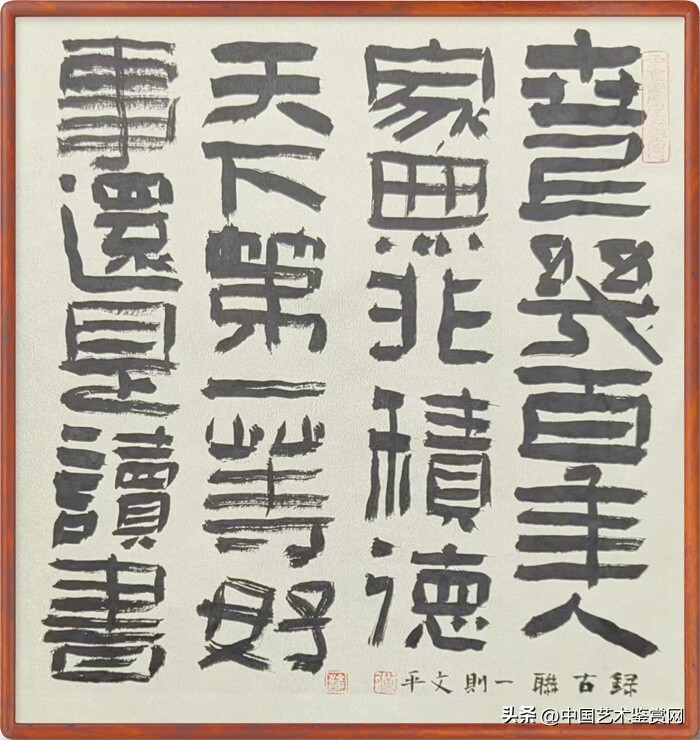 世幾百年人
家無非積德
天下第一等好
事還是讀書
録古聯一則文平
头条 @中国艺术鉴赏网